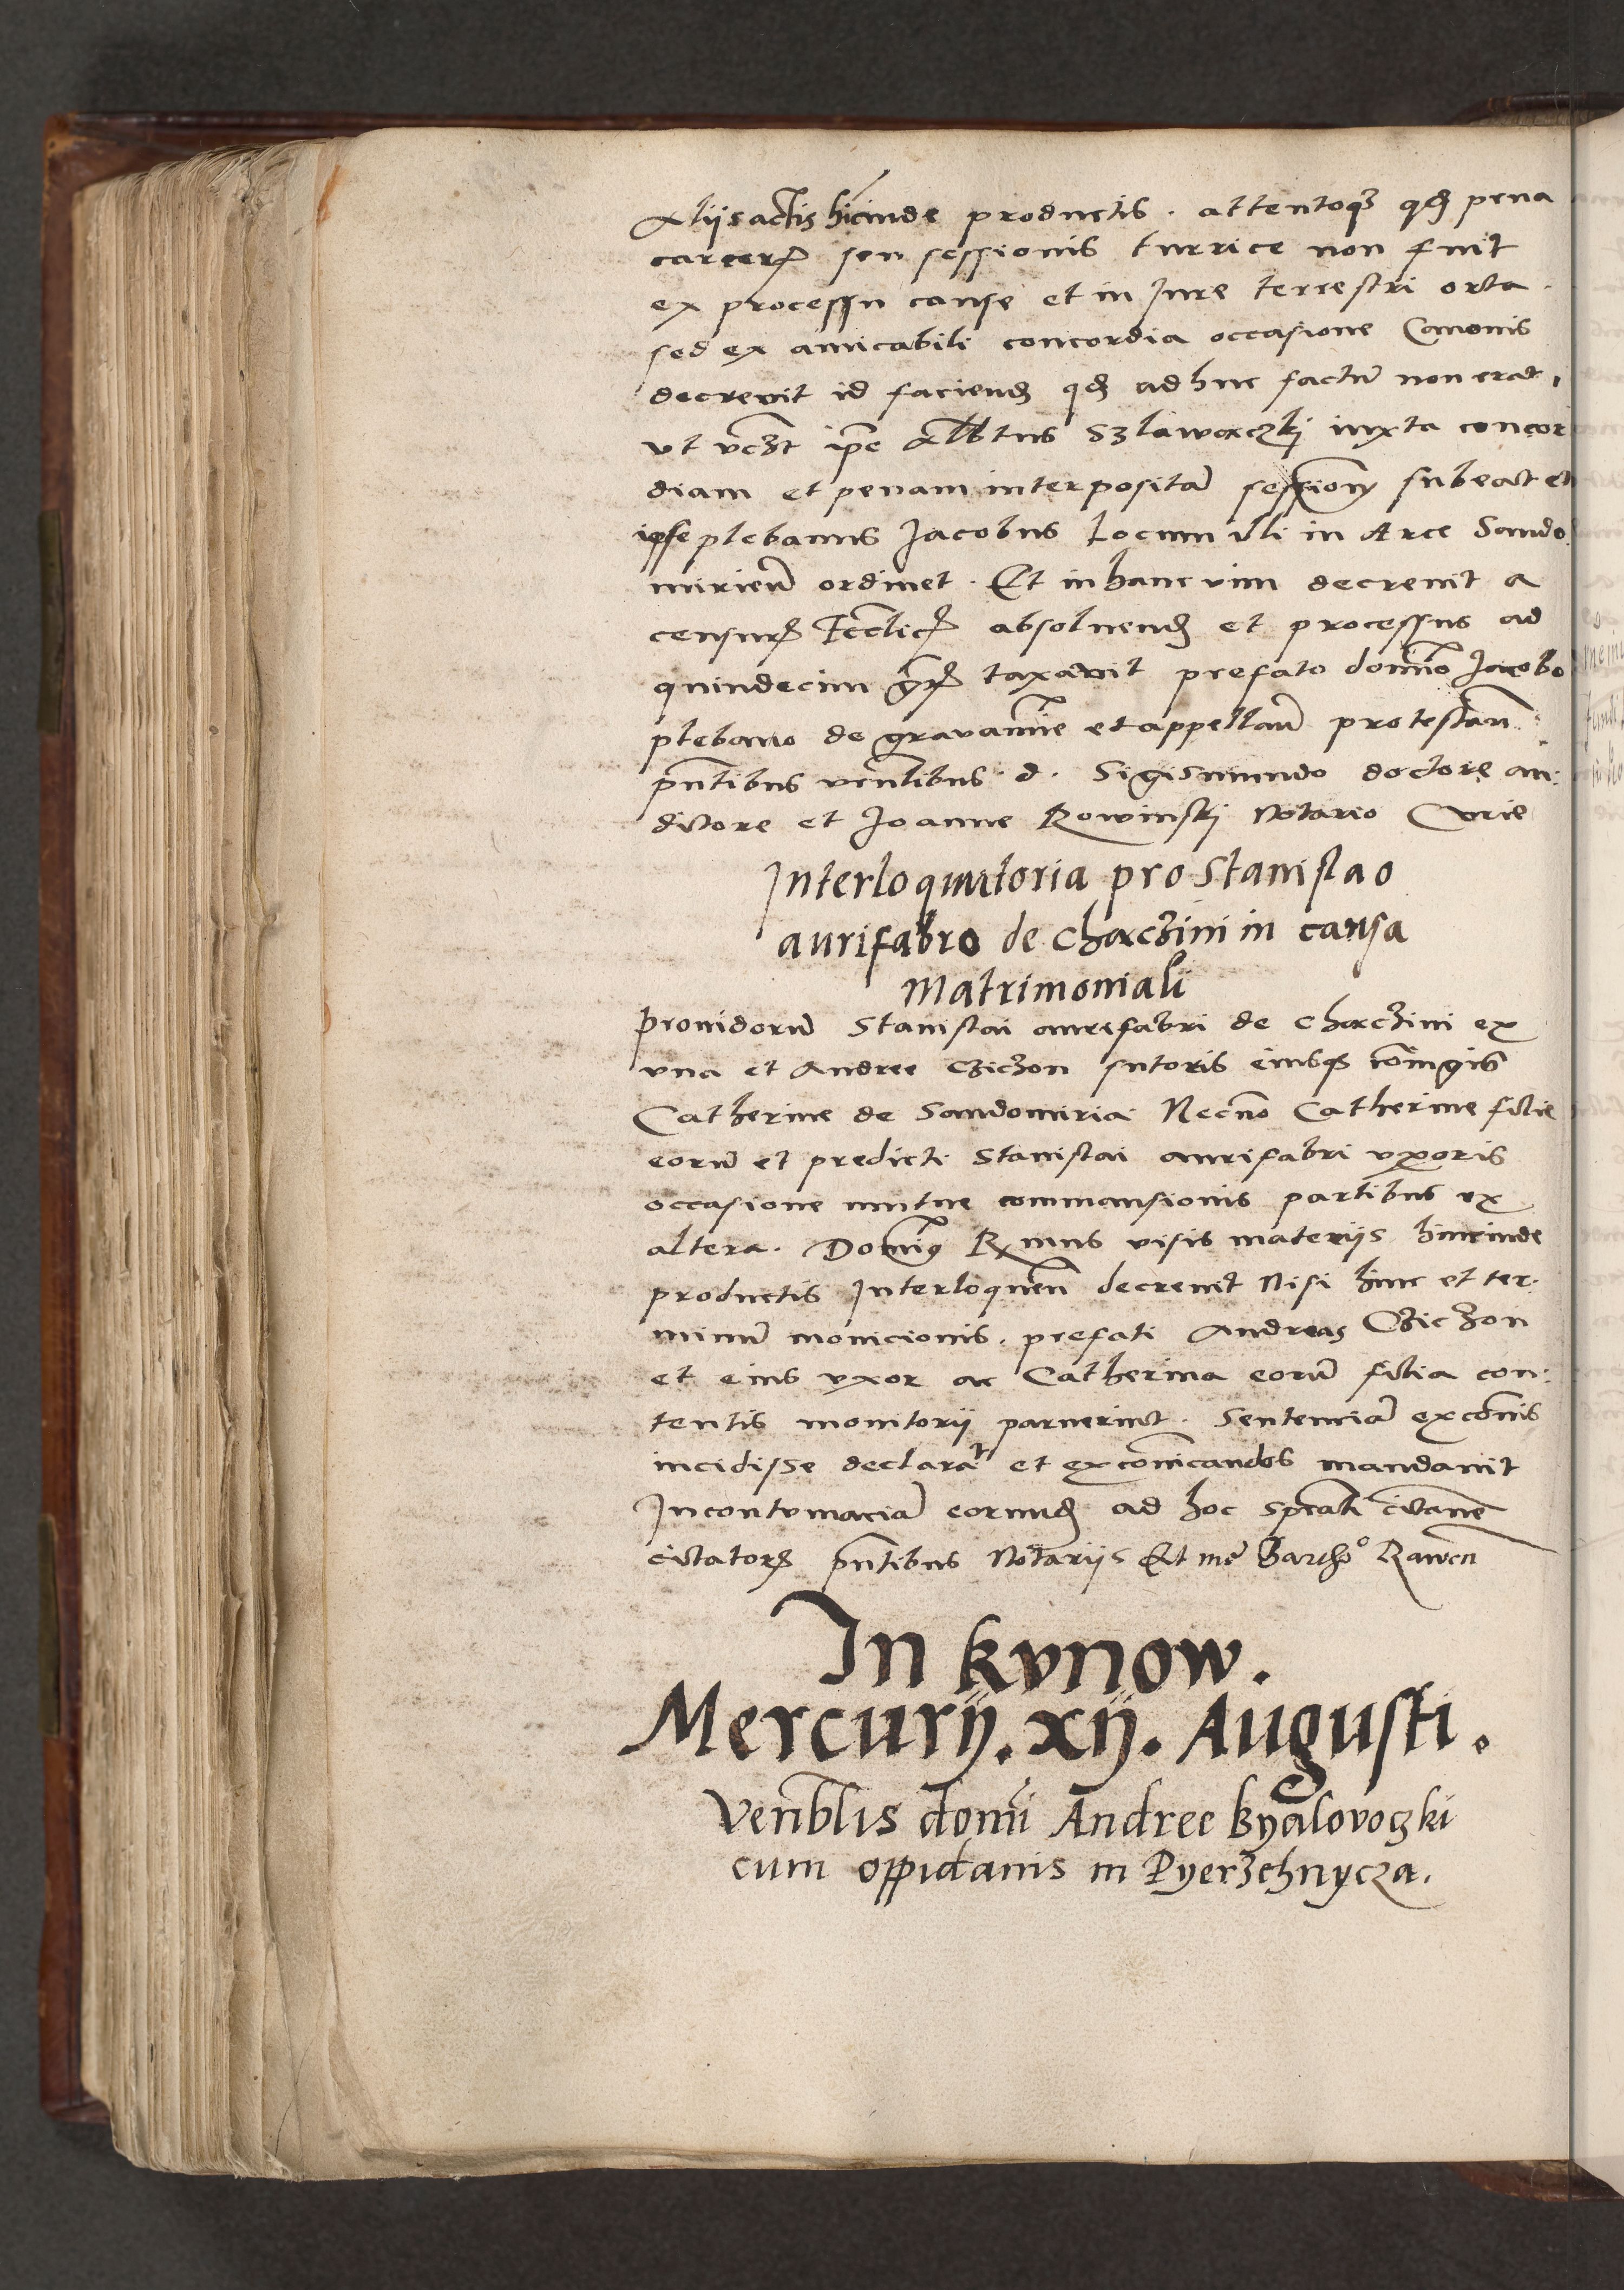 Alijs actis hīcinde productis. attentoqꝫ qđ pena
carcerꝝ seu sessionis turrice non fuit
ex processu cause et in Jure terrestri orta.
sed ex amicabili concordia occasione Canonis
decrevit id faciendꝭ qđ ad huc factū non erat,
vt vcꝫt ip̄e Albtus Szlawaczkj iuxta concor
diam et penam interpositā sessionꝭ subeat et
ipse plebanus Jacobus Locum illi in Arce Sando
mirien̄ ordinet. Et in hanc vim decrevit a
censurꝭ Ecclicꝭ absoluendꝭ et processus ad
quindecim grꝭ taxavit prefato domīo Jacobo
plebano de gravamīe et appelladū protestan̄:
pn̄tibus ven̄libus d. Sigismundo doctore au:
ditore et Joanne Rowinskj Notario Curie
Interloquutoria pro Stanislao
aurifabro de Chaczini in causa
Matrimoniali
Prouidorū Stanislai aurifabri de Chaczini ex
vna et Andree Cziczon sutoris eiusqꝫ coniugis
Catherine de Sandomiria Necnō Catherine filie
eorū et predicti Stanislai aurifabri vxoris
occasione mutue commansionis partibus ex
altera. Domiꝰ Rmus visis materijs hincinde
productis Interloquen̄ decrevit Nisi hinc et ter:
minū monicionis. prefati Andreas Cziczon
et eius vxor ac Catherina eorū filia con:
tentis monitorij paruerint. Sentenciā excōīs
incidisse declarat et excōīcandos mandavit
In contumaciā eorundꝭ ad hoc sp̄eali citacōne
citatorꝝ pn̄tibus Notarijs Et me Bartho° Rawen̄
In kvnow.
Mercurij. xij. Augusti.
Venblis domi Andree Byalovoczki
cum oppidanis in Pyerzchnycza.